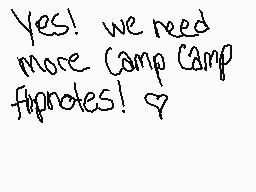 Yes! we need
more Camp Camp
flipnotes! ♡